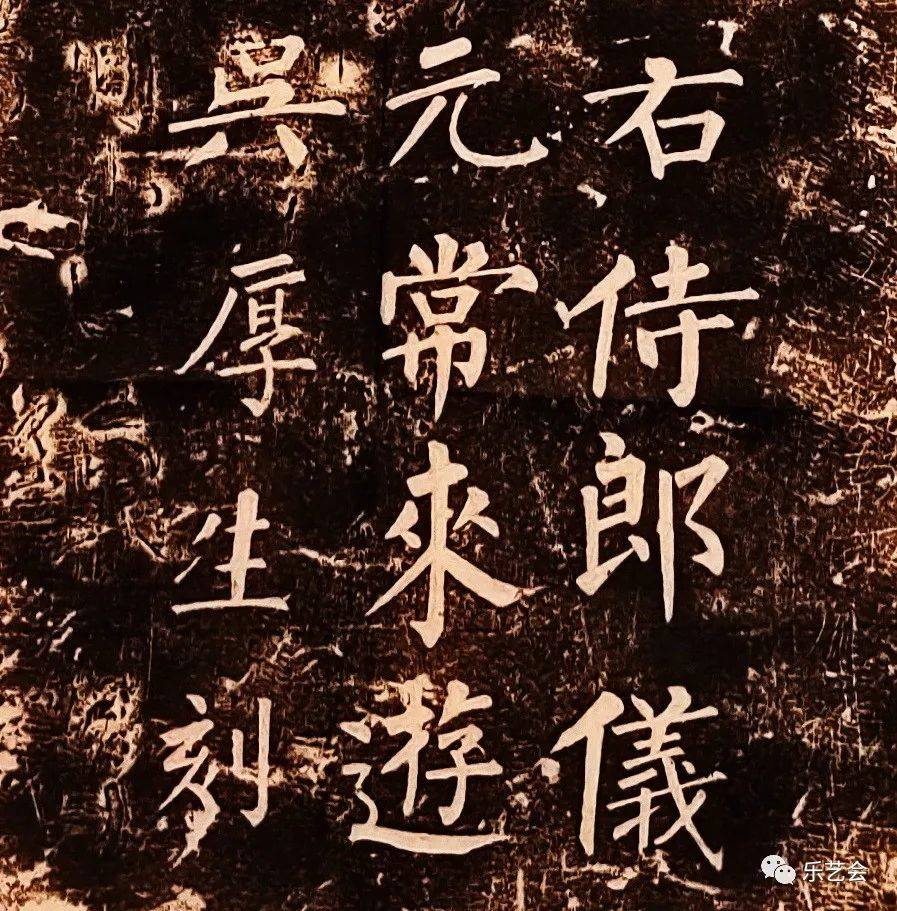 右侍郎儀
元常來遊
吳厚生刻
乐艺会